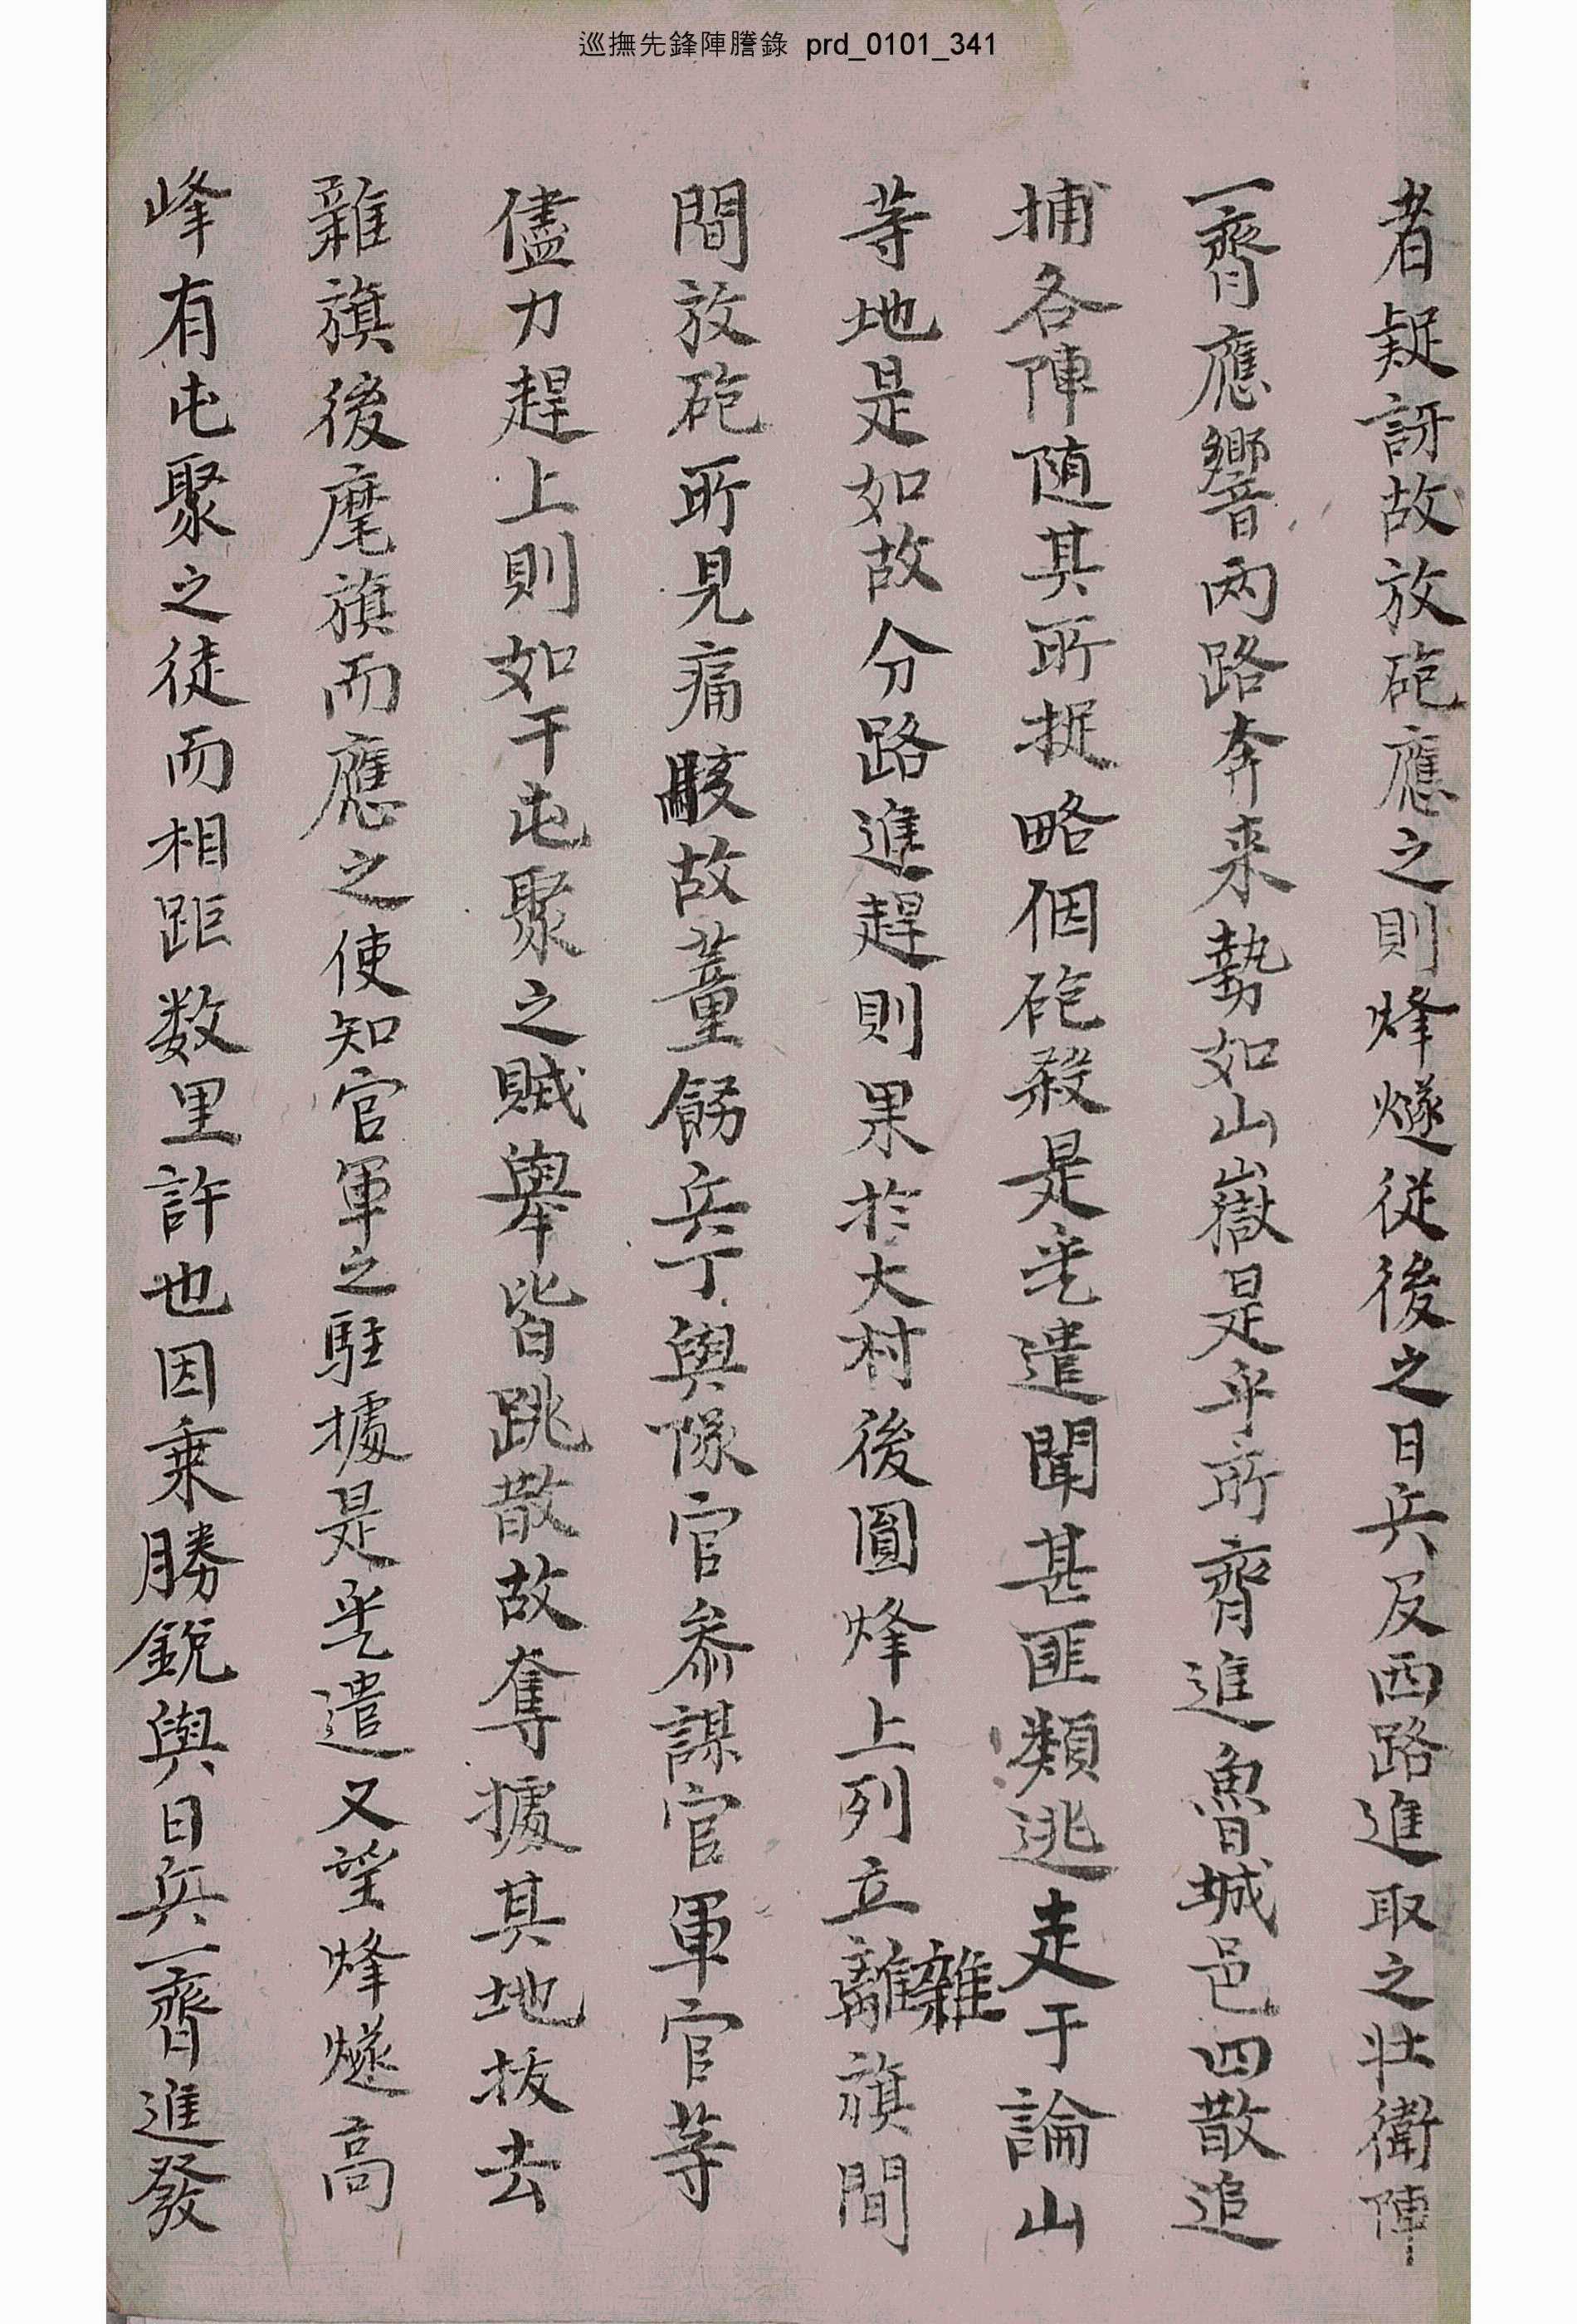 巡撫先鋒陣謄錄 prd_0101_341
者疑訝故放砲應之則烽燧從後之日兵及西路進取之壯衛陣
一齊應響両路奔来勢如山嶽是乎所齊進魯城邑四散追
捕各陣随其所捉略個砲殺是乎遣聞甚匪類逃走于論山
等地是如故分路進趕則果於大村後圓烽上列立雜旗間
間放砲所見痛駭故董飭兵丁與隊官叅謀官軍官等
儘力趕上則如干屯聚之賊擧皆跳散故奪據其地拔去
雜旗後麾旗而應之使知官軍之駐據是乎遣又望烽燧高
峰有屯聚之徒而相距数里許也因乗勝銳與日兵一齊進發